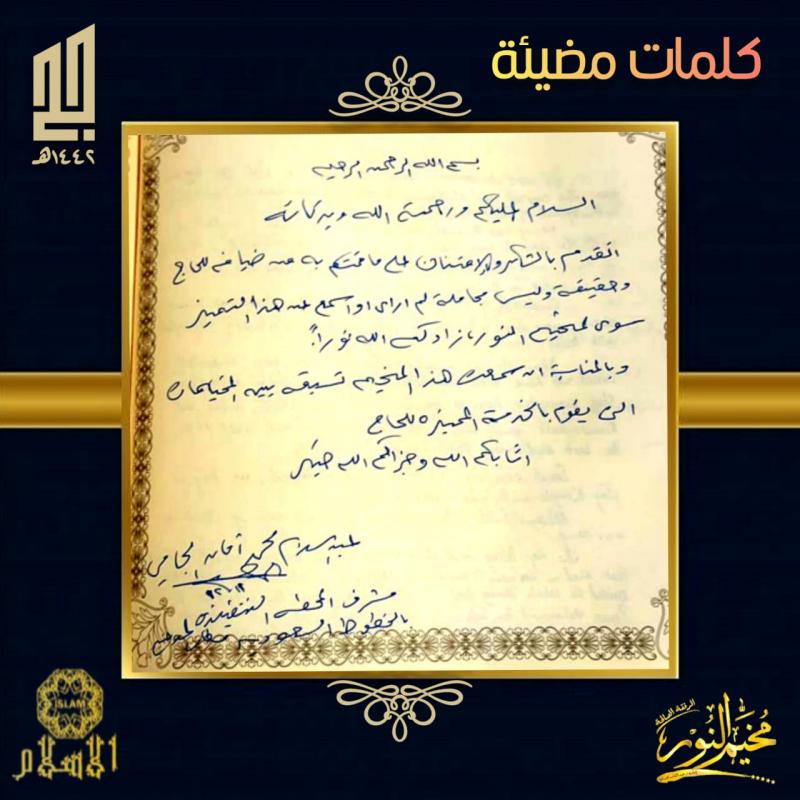 كلمات مضيئة
١٤٤٢هـ
بسم الله الرحمن الرحيم
السلام عليكم ورحمة الله وبركاته
اتقدم بالشكر والامتنان على ما قمتم به من ضيافه للحاج
وحقيقة وليس مجاملة لم ارى او اسمع عن هذا التميز
سوى لمخيم النور، زادكم الله نوراً.
وبالمناسبة ان سمعت هذا المخيم تسبقه بين المخيمات
الذي يقوم بالخدمة المميزه للحاج
اثابكم الله وجزاكم الله خير
عبدالسلام محمد امان الجامي
مشرف المحطه
بالخطوط السعوديه
ISLAM
الاسلام
مخيم النور